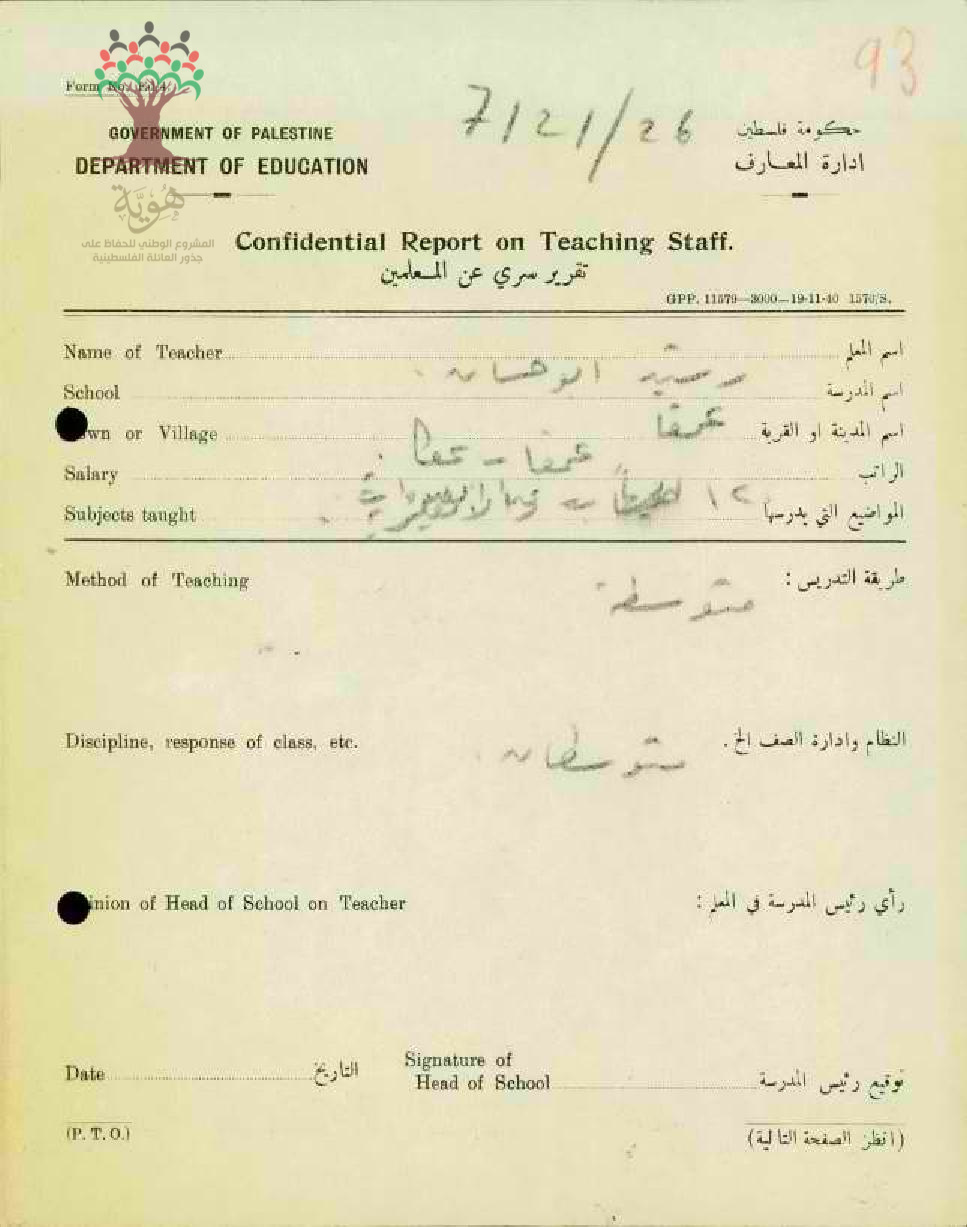 93
Form No. Ed.4
7/21/26
GOVERNMENT OF PALESTINE
حكومة فلسطين
DEPARTMENT OF EDUCATION
ادارة المعارف
هُوِيَّة
المشروع الوطني للحفاظ على
جذور العائلة الفلسطينية
Confidential Report on Teaching Staff.
تقرير سري عن المعلمين
GPP. 11579—3000—19-11-40 1570/S.
Name of Teacher اسم المعلم
رشيد ابو حسان
School اسم المدرسة
عمقا
wn or Village اسم المدينة او القرية
عمقا - عكا
Salary الراتب
١٢
Subjects taught المواضيع التي يدرسها
Method of Teaching طريقة التدريس :
متوسطة
Discipline, response of class, etc. النظام وادارة الصف الخ .
متوسطان
inion of Head of School on Teacher رأي رئيس المدرسة في المعلم :
Date التاريخ
Signature of
Head of School توقيع رئيس المدرسة
(P. T. O.) (انظر الصفحة التالية)